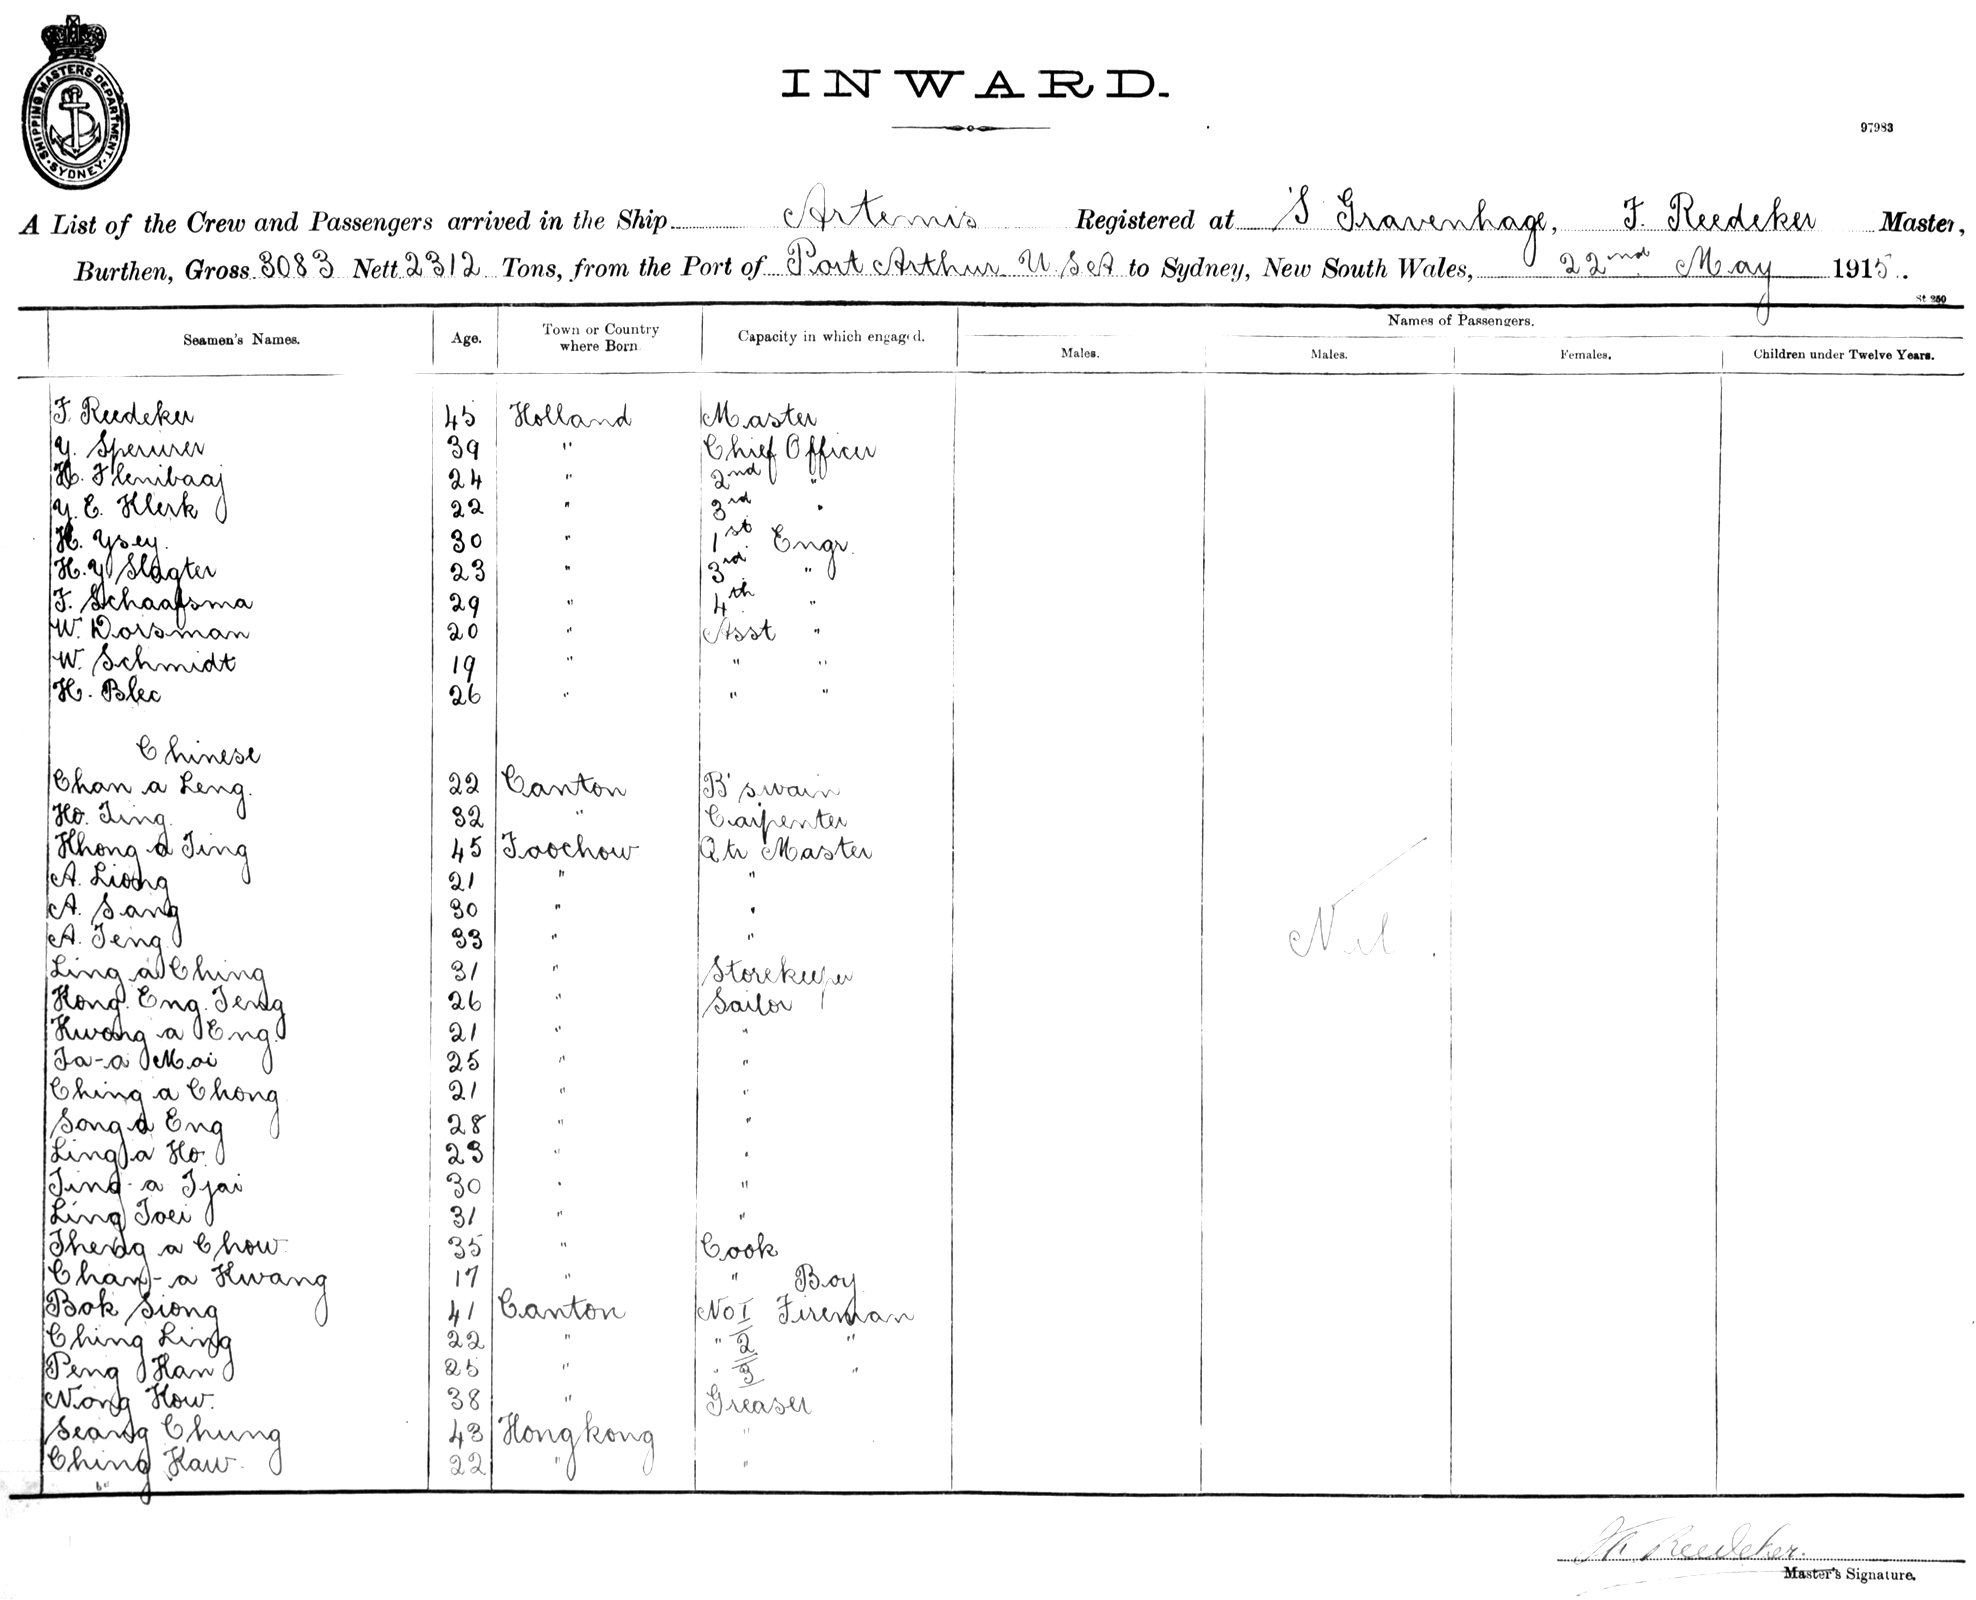 SHIPPING MASTERS DEPARTMENT. SYDNEY.
INWARD.
97983
A List of the Crew and Passengers arrived in the Ship Artemis Registered at 'S Gravenhage, F. Reedeker Master,
Burthen, Gross 3083 Nett 2312 Tons, from the Port of Port Arthur U S A to Sydney, New South Wales, 22nd May 1915.
St 250
Seamen's Names. Age. Town or Country where Born Capacity in which engaged. Names of Passengers.
Males. Males. Females. Children under Twelve Years.
F. Reedeker 45 Holland Master
Y. 39 " Chief Officer
H. Flenibaaj 24 " 2nd "
Y. E. Klerk 22 " 3rd "
H. Ysey. 30 " 1st Engr.
H. Y Slagter 23 " 3rd "
F. Schaafsma 29 " 4th "
W. Dorsman 20 " Asst "
W. Schmidt 19 " " "
H. Blec 26 " " "
Chinese
Chan a Leng. 22 Canton B'swain
Ho. Ting. 32 " Carpenter
Khong a Ting 45 Foochow Qtr Master
A. Liong 21 " "
A. Sang 30 " "
A. Teng 33 " "
Ling a Ching 31 " Storekeeper
Hong. Eng. Teng 26 " Sailor
Kwong a Eng. 21 " "
Ta-a Moi 25 " "
Ching a Chong 21 " "
Song a Eng 28 " "
Ling a Ho. 23 " "
Ting-a Tjai 30 " "
Ling Toei 31 " "
Theng a Chow 35 " Cook
Chan-a Kwang 17 " " Boy
Bok Siong 41 Canton No 1 Fireman
Ching Ling 22 " " 2 "
Peng Han 25 " " 3 "
Nong How. 38 " Greaser
Seang Chung 43 Hongkong "
Ching Kaw. 22 " "
Nil.
F. Reedeker.
Master's Signature.